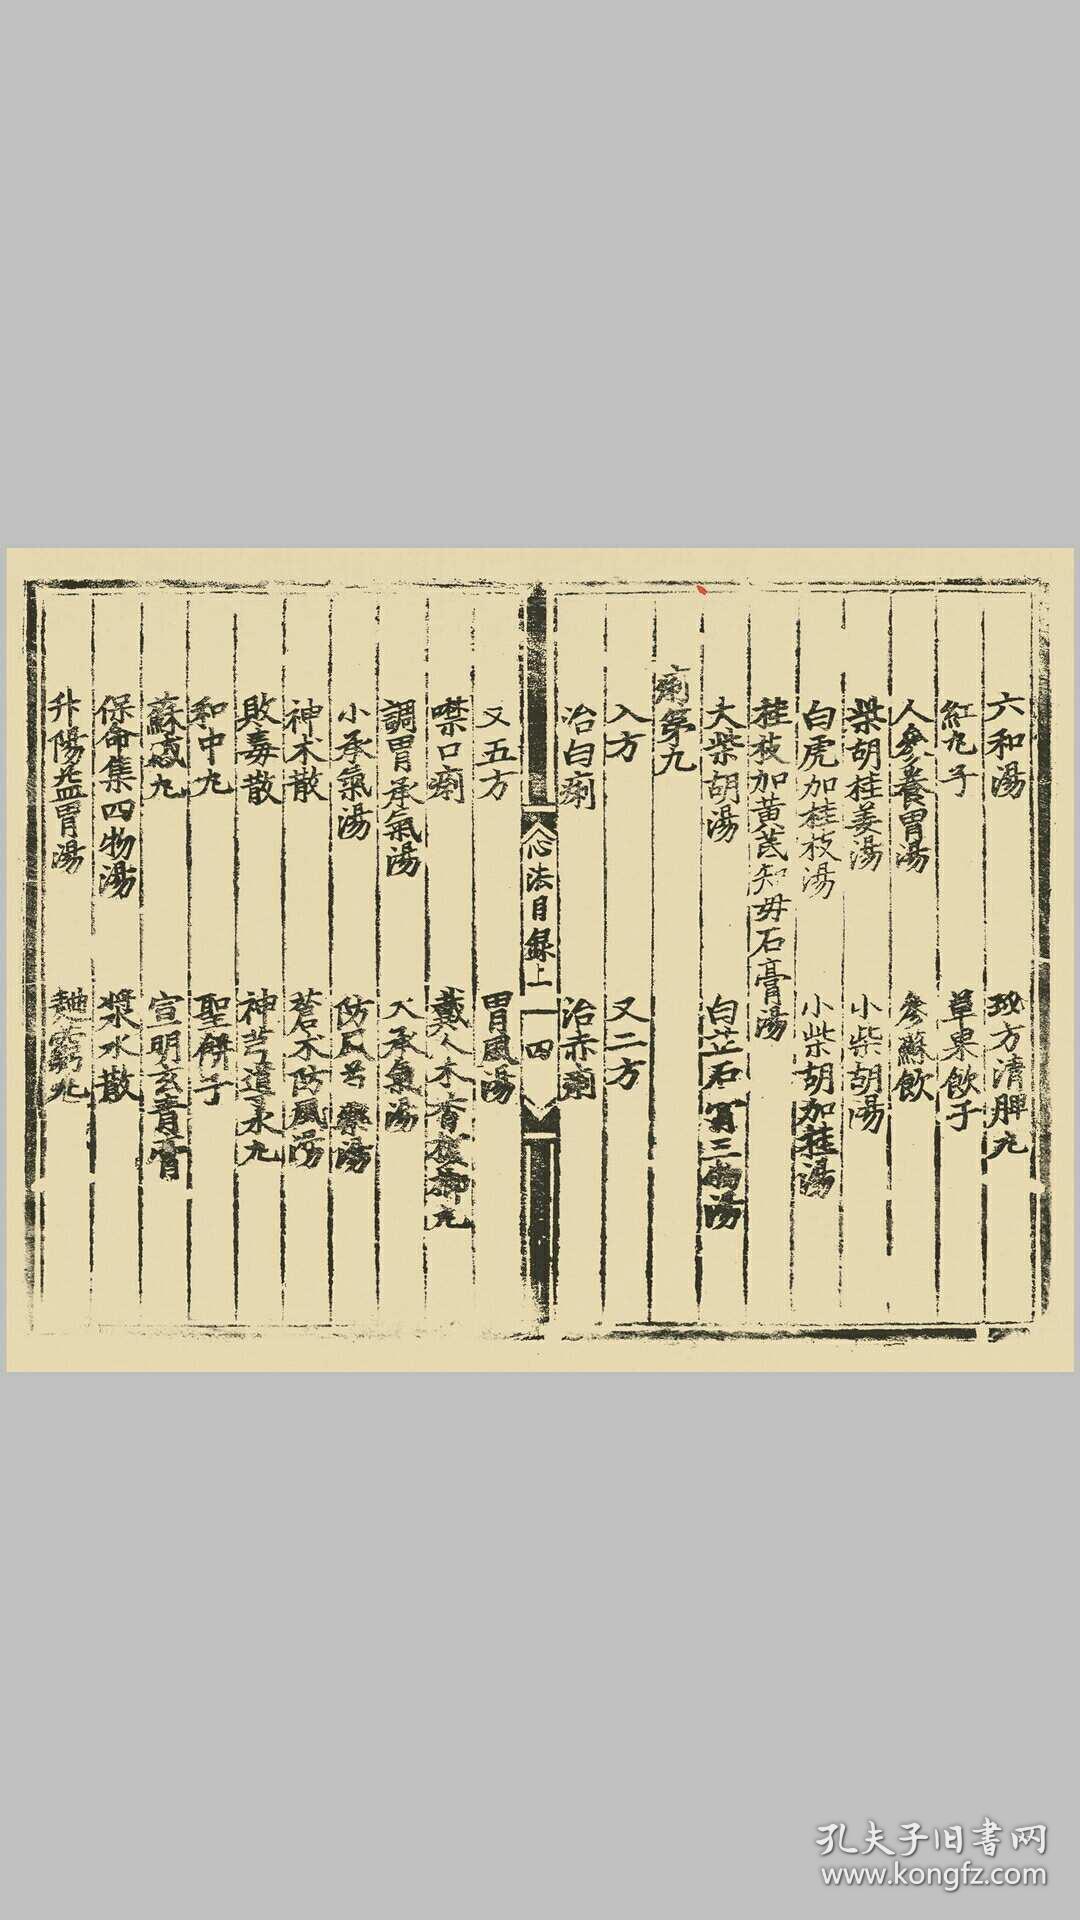 六和湯　方清脾丸
紅丸子　草果飲子
人參養胃湯　參蘇飲
柴胡桂姜湯　小柴胡湯
白虎加桂枝湯　小柴胡加桂湯
桂枝加黄芪知母石膏湯
大柴胡湯　白芷石膏三物湯
痢第九
入方　又二方
治白痢　治赤痢
心法目録上　四
又五方　胃風湯
噤口痢　戴人木香檳榔丸
調胃承氣湯　大承氣湯
小承氣湯　防風芍藥湯
神术散　蒼术防風湯
敗毒散　神芎導水丸
和中丸　聖餅子
蘇感丸　宣明玄青膏
保命集四物湯　漿水散
升陽益胃湯　麯芎丸
孔夫子旧书网
www.kongfz.com